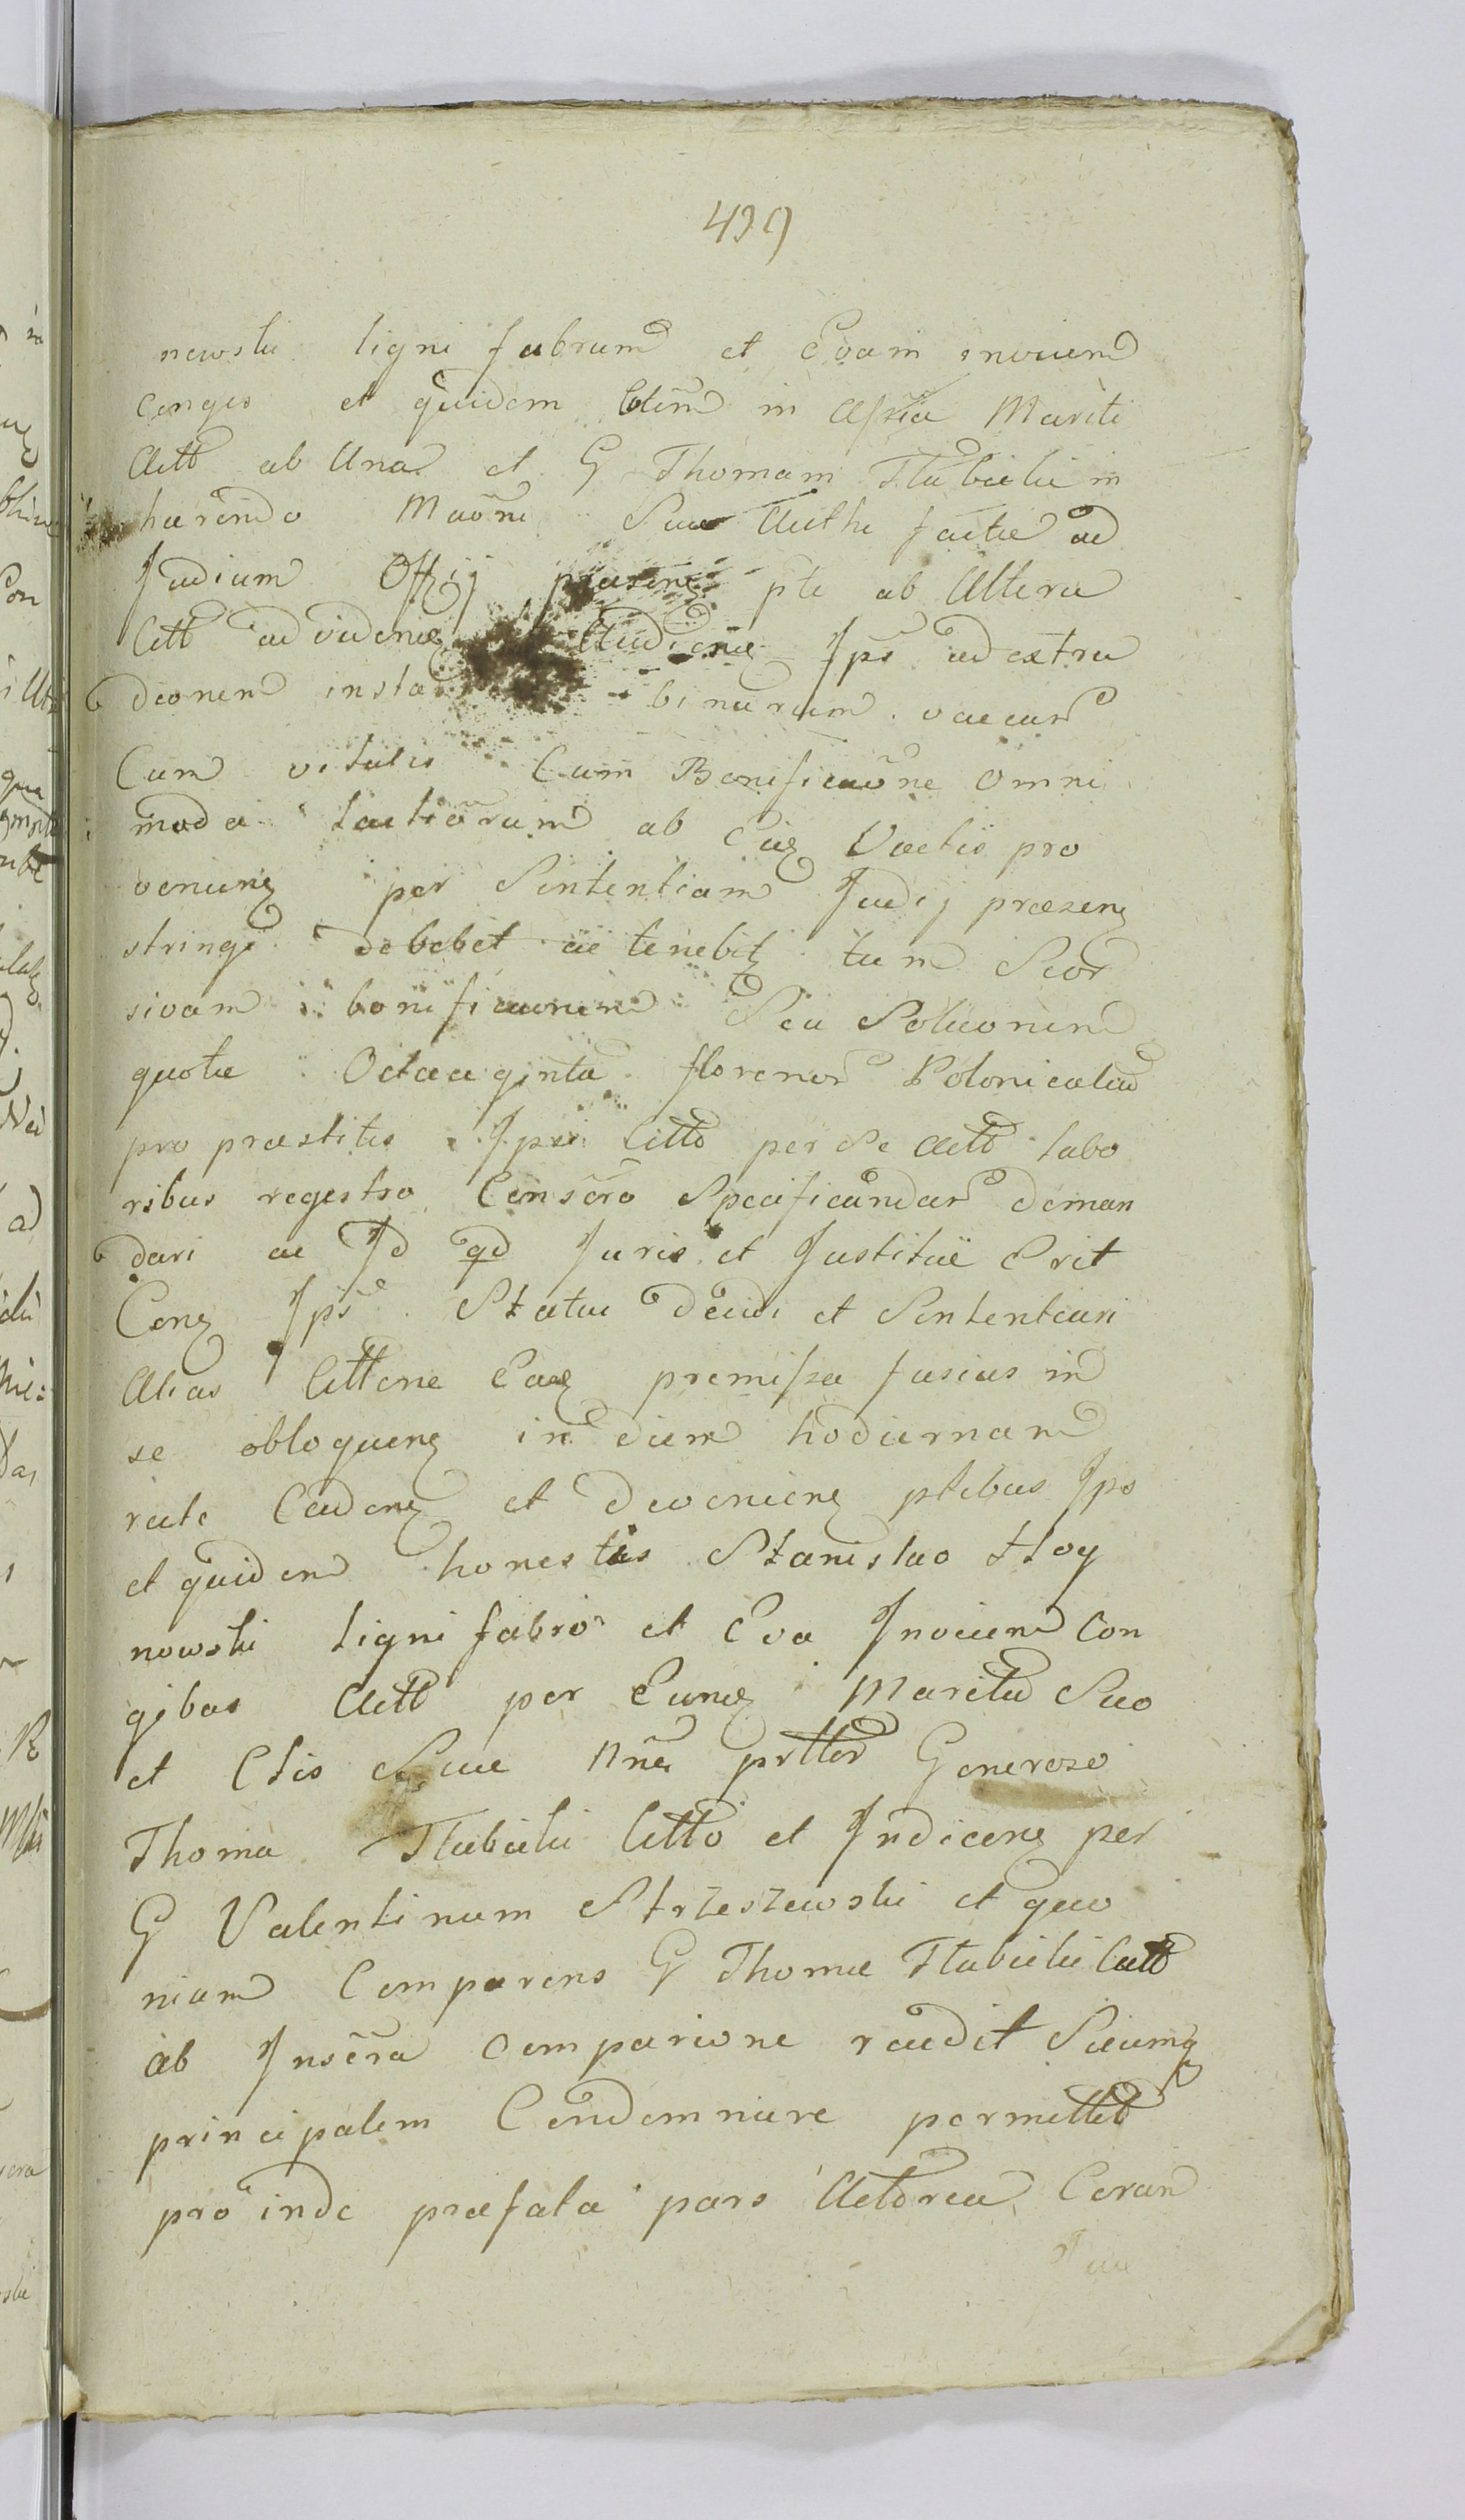 439
nowski ligni fabrum et Evam invicem
conges et quidem Ctem in Assia Mariti
Actt ab Una et G Thomam Skubicki in
harendo Maoni Suae Authe factae ad
Judium Offij praesens pte ab Altera
Citt ad videnz Audienz Jps ad extra
dionem insta binarum vaccar
Cum vitulis Cum Bonificaone omni
moda lacticorum ab Eiq Vaccis pro
venienz per Sententiam Judij praesenz
stringi debebet ac tenebit tum Seor
sivam bonificaonem Seu Soluonem
quotae Octuaginta florenor Polonicaliu
pro praestitis Jpsi Citto per Se Actt labo
ribus regestro Conscro Specificandar deman
dari ac Id qd Juris et Justitiae Erit
Conz Jps Statui decidi et Sententiari
Alias Cittone Eaq premissa fusius in
se obloquenz in diem hodiernam
rite Cadenz et devenienz ptibus Jps
et quidem honestis Stanislao Hoy
nowski ligni fabro et Eva Invicem Con
gibus Actt per Eunq Maritu Suo
et Ctis Suae Nne prttor Generoso
Thoma Skubicki Citto et Judicenz per
G Valentinum Strzeszewski et quo
niam Comparens G Thomae Skubicki Citt
ab Inscra Comparione recedit Suumq
principalem Condemnare permittit
pro inde praefata pars Actorea Coram
Jud